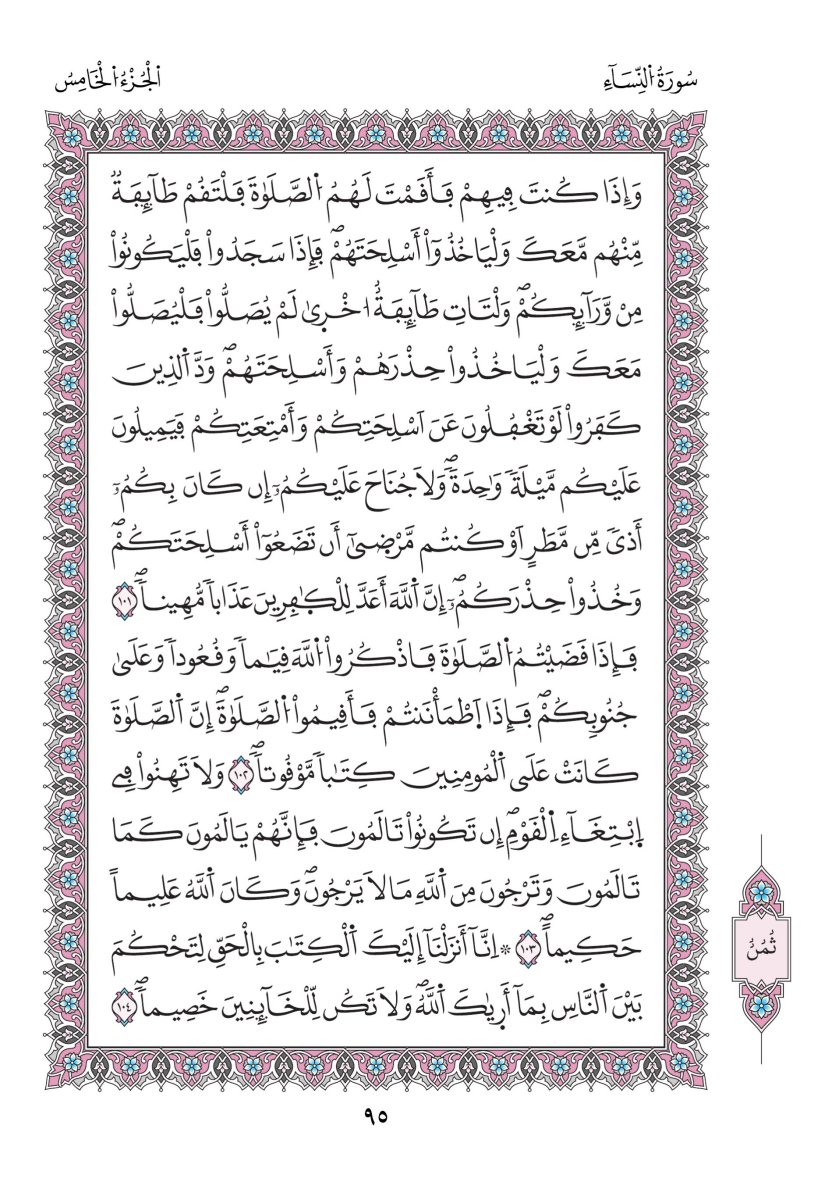 سُورَةُ اُ۬لنِّسَآءِ
اَ۬لْجُزْءُ اُ۬لْخَامِسُ
وَإِذَا كُنتَ فِيهِمْ فَأَقَمْتَ لَهُمُ اُ۬لصَّلَوٰةَ فَلْتَقُمْ طَآئِفَةٞ
مِّنْهُم مَّعَكَ وَلْيَاخُذُوٓاْ أَسْلِحَتَهُمْۖ فَإِذَا سَجَدُواْ فَلْيَكُونُواْ
مِنْ وَّرَآئِكُمْۖ وَلْتَاتِ طَآئِفَةٌ ا۟خْر۪يٰ لَمْ يُصَلُّواْ فَلْيُصَلُّواْ
مَعَكَ وَلْيَاخُذُواْ حِذْرَهُمْ وَأَسْلِحَتَهُمْۖ وَدَّ اَ۬لذِينَ
كَفَرُواْ لَوْ تَغْفُلُونَ عَنَ اَسْلِحَتِكُمْ وَأَمْتِعَتِكُمْ فَيَمِيلُونَ
عَلَيْكُم مَّيْلَةٗ وَٰحِدَةٗۖ وَلَا جُنَاحَ عَلَيْكُمُۥٓ إِن كَانَ بِكُمُۥٓ
أَذيٗ مِّن مَّطَرٍ اَوْ كُنتُم مَّرْض۪يٰٓ أَن تَضَعُوٓاْ أَسْلِحَتَكُمْۖ
وَخُذُواْ حِذْرَكُمُۥٓۖ إِنَّ اَ۬للَّهَ أَعَدَّ لِلْكٰ۪فِرِينَ عَذَاباٗ مُّهِيناٗۖ ١٠١
فَإِذَا قَضَيْتُمُ اُ۬لصَّلَوٰةَ فَاذْكُرُواْ اُ۬للَّهَ قِيَٰماٗ وَقُعُوداٗ وَعَلَىٰ
جُنُوبِكُمْۖ فَإِذَا اَ۪طْمَأْنَنتُمْ فَأَقِيمُواْ اُ۬لصَّلَوٰةَۖ إِنَّ اَ۬لصَّلَوٰةَ
كَانَتْ عَلَى اَ۬لْمُومِنِينَ كِتَٰباٗ مَّوْقُوتاٗۖ ١٠٢ وَلَا تَهِنُواْ فِے
اِ۪بْتِغَآءِ اِ۬لْقَوْمِۖ إِن تَكُونُواْ تَالَمُونَ فَإِنَّهُمْ يَالَمُونَ كَمَا
تَالَمُونَ وَتَرْجُونَ مِنَ اَ۬للَّهِ مَا لَا يَرْجُونَۖ وَكَانَ اَ۬للَّهُ عَلِيماً
حَكِيماًۖ ١٠٣ ۞ اِنَّآ أَنزَلْنَآ إِلَيْكَ اَ۬لْكِتَٰبَ بِالْحَقِّ لِتَحْكُمَ
بَيْنَ اَ۬لنَّاسِ بِمَآ أَر۪يٰكَ اَ۬للَّهُۖ وَلَا تَكُن لِّلْخَآئِنِينَ خَصِيماٗۖ ١٠٤
ثُمُنُ
٩٥